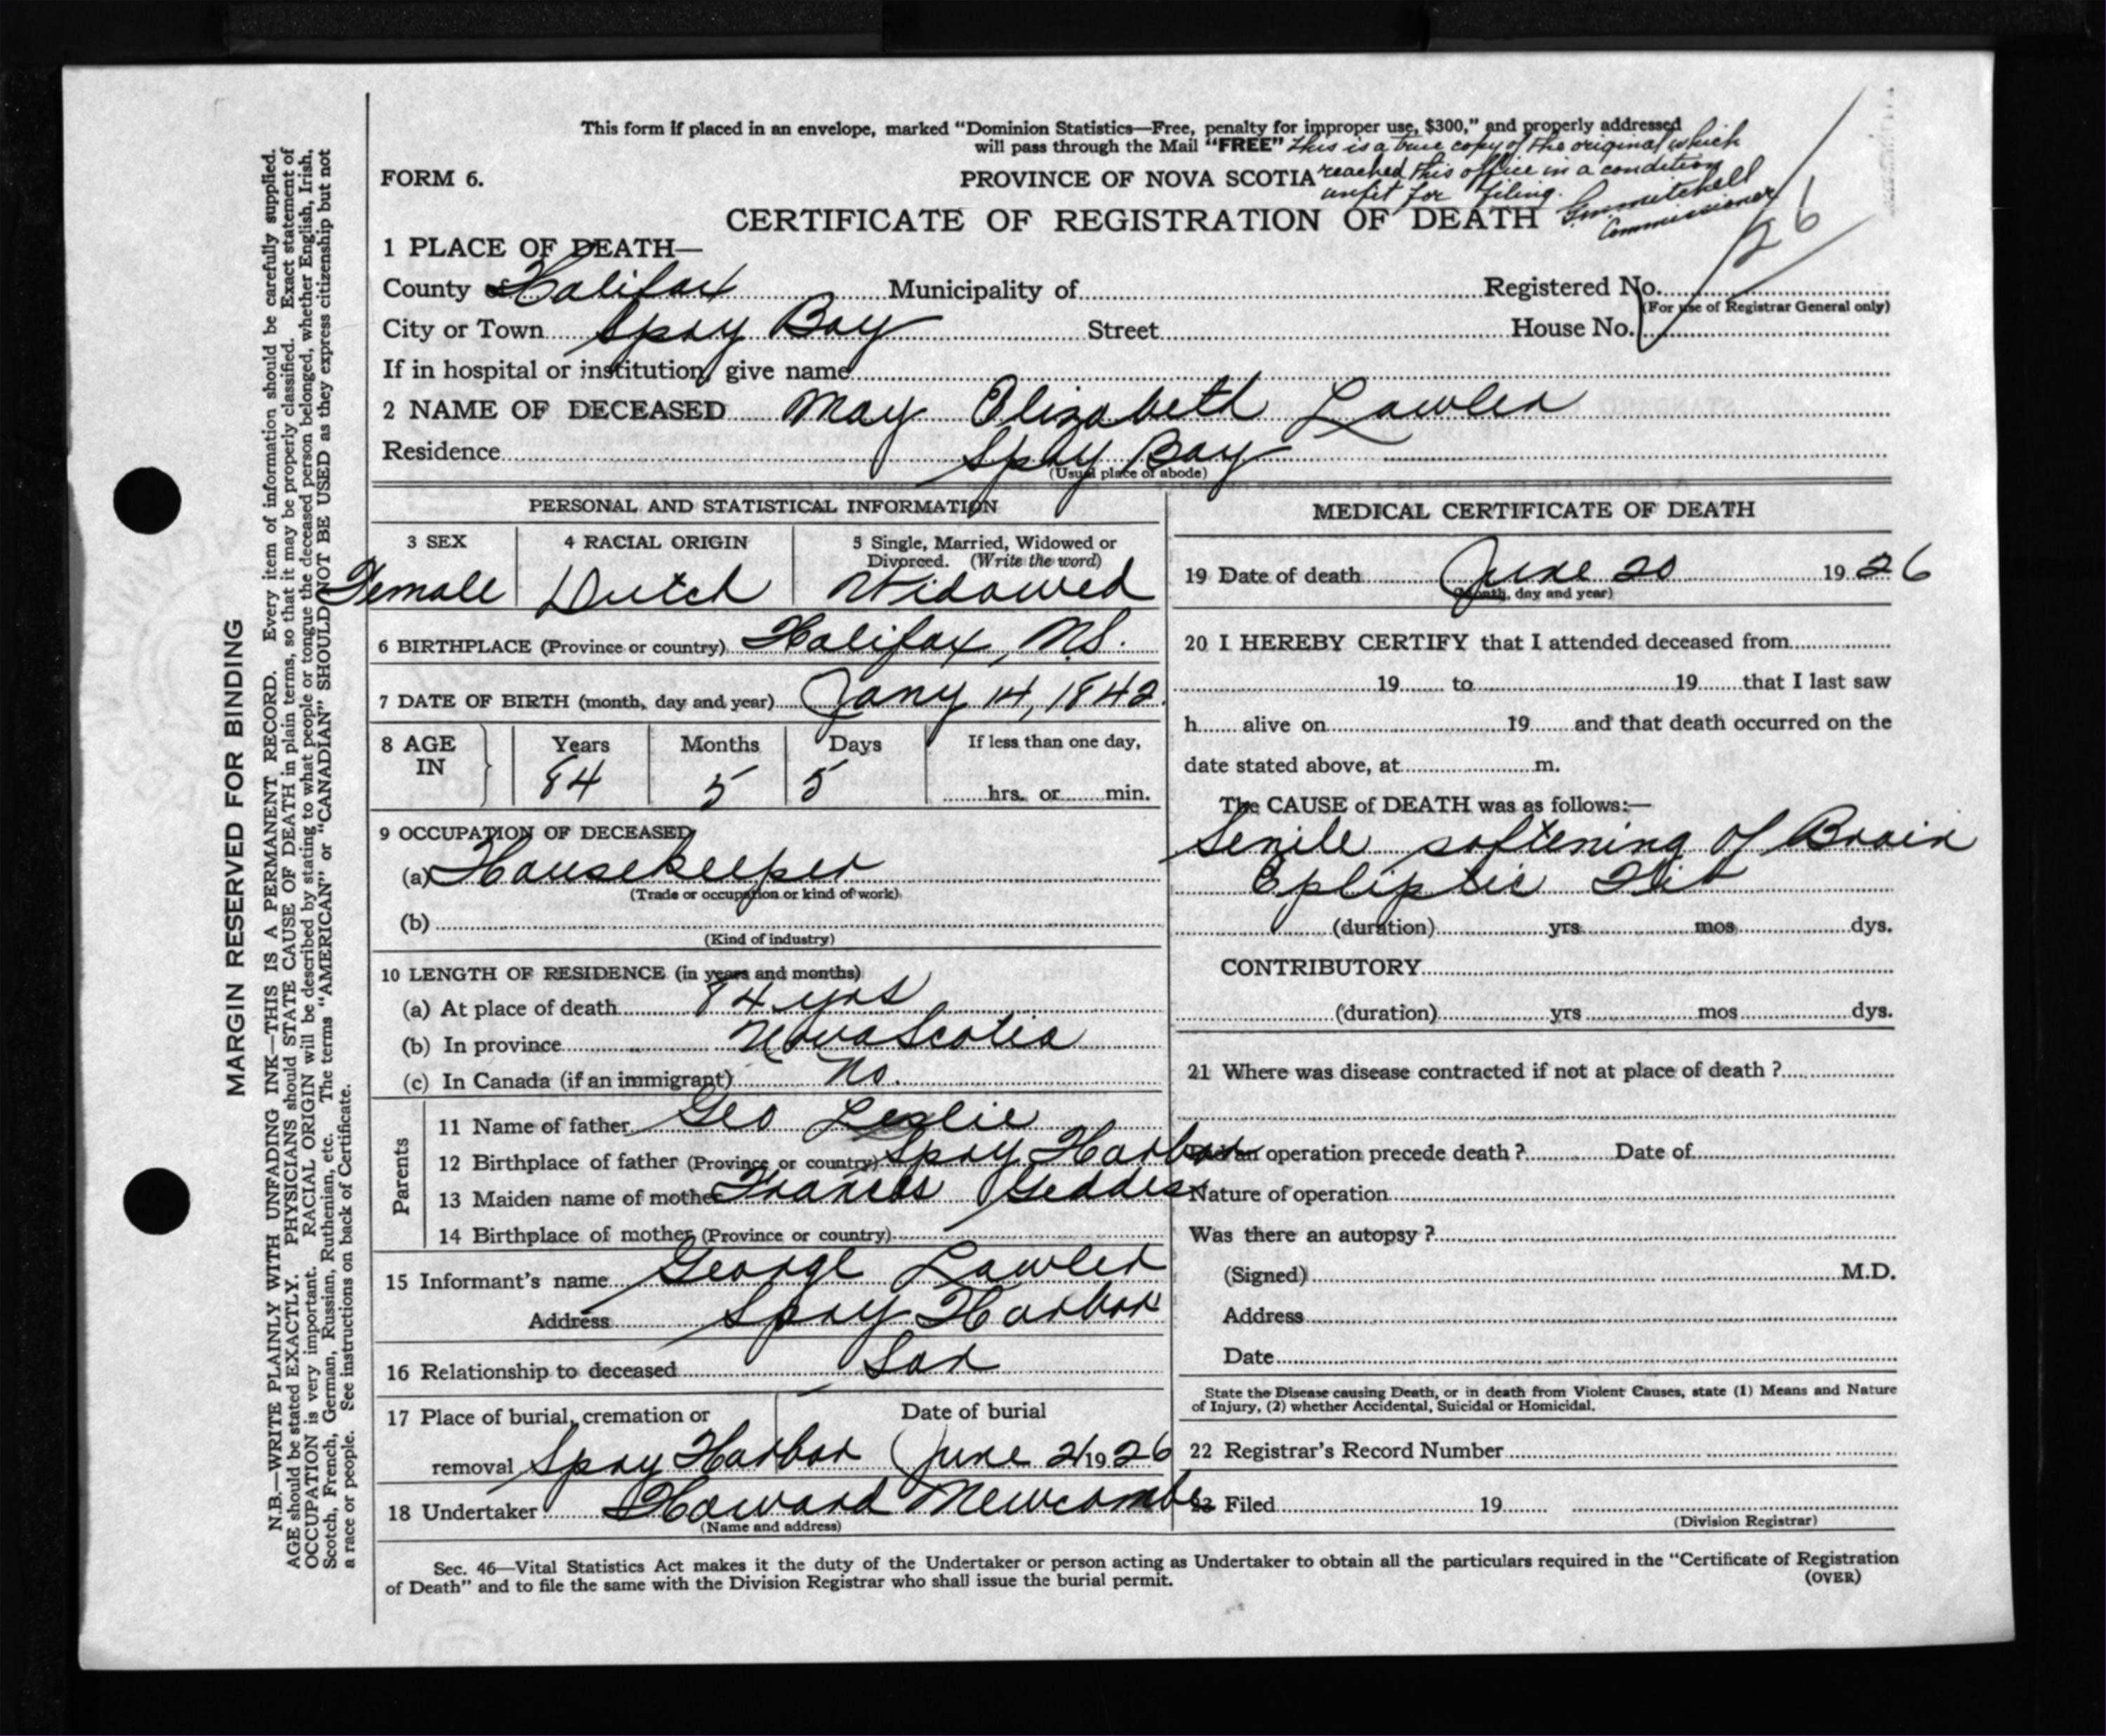 This form if placed in an envelope, marked “Dominion Statistics—Free, penalty for improper use, $300,” and properly addressed
will pass through the Mail “FREE” This is a true copy of the original which
reached this office in a condition
unfit for filing.
Commissioner
FORM 6.
PROVINCE OF NOVA SCOTIA
CERTIFICATE OF REGISTRATION OF DEATH
26
1 PLACE OF DEATH—
County of Halifax Municipality of Registered No.
(For use of Registrar General only)
City or Town Spay Bay Street House No.
If in hospital or institution, give name
2 NAME OF DECEASED May Elizabeth Lawler
Residence Spay Bay
(Usual place of abode)
PERSONAL AND STATISTICAL INFORMATION
3 SEX
Female
4 RACIAL ORIGIN
Dutch
5 Single, Married, Widowed or
Divorced. (Write the word)
Widowed
6 BIRTHPLACE (Province or country) Halifax, N.S.
7 DATE OF BIRTH (month, day and year) Jany 14, 1842.
8 AGE
IN
Years
84
Months
5
Days
5
If less than one day,
hrs. or min.
9 OCCUPATION OF DECEASED
(a) Housekeeper
(Trade or occupation or kind of work)
(b)
(Kind of industry)
10 LENGTH OF RESIDENCE (in years and months)
(a) At place of death 84 yrs
(b) In province Nova Scotia
(c) In Canada (if an immigrant) No.
Parents
11 Name of father Geo Leslie
12 Birthplace of father (Province or country) Spry Harbor
13 Maiden name of mother Frances Geddes
14 Birthplace of mother (Province or country)
15 Informant's name George Lawler
Address Spry Harbor
16 Relationship to deceased Son
17 Place of burial, cremation or
removal Spry Harbor
Date of burial
June 21 1926
18 Undertaker Howard Newcombe
(Name and address)
MEDICAL CERTIFICATE OF DEATH
19 Date of death June 20 1926
(Month, day and year)
20 I HEREBY CERTIFY that I attended deceased from
19 to 19 that I last saw
h alive on 19 and that death occurred on the
date stated above, at m.
The CAUSE of DEATH was as follows:—
Senile softening of Brain
Epliptic Fit
(duration) yrs mos dys.
CONTRIBUTORY
(duration) yrs mos dys.
21 Where was disease contracted if not at place of death ?
Did an operation precede death ? Date of
Nature of operation
Was there an autopsy ?
(Signed) M.D.
Address
Date
State the Disease causing Death, or in death from Violent Causes, state (1) Means and Nature
of Injury, (2) whether Accidental, Suicidal or Homicidal.
22 Registrar's Record Number
23 Filed 19
(Division Registrar)
Sec. 46—Vital Statistics Act makes it the duty of the Undertaker or person acting as Undertaker to obtain all the particulars required in the “Certificate of Registration
of Death” and to file the same with the Division Registrar who shall issue the burial permit.
(OVER)
MARGIN RESERVED FOR BINDING
N.B.—WRITE PLAINLY WITH UNFADING INK—THIS IS A PERMANENT RECORD. Every item of information should be carefully supplied.
AGE should be stated EXACTLY. PHYSICIANS should STATE CAUSE OF DEATH in plain terms, so that it may be properly classified. Exact statement of
OCCUPATION is very important. RACIAL ORIGIN will be described by stating to what people or tongue the deceased person belonged, whether English, Irish,
Scotch, French, German, Russian, Ruthenian, etc. The terms “AMERICAN” or “CANADIAN” SHOULD NOT BE USED as they express citizenship but not
a race or people. See instructions on back of Certificate.